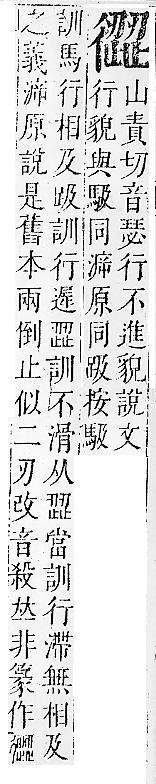 㣦山責切音瑟行不進貌說文
行貌與馺同泝原同趿按馺
訓馬行相及趿訓行遲歰訓不滑从歰當訓行滯無相及
之義泝原說是舊本兩倒止似二刃改音殺𠀤非篆作㣦